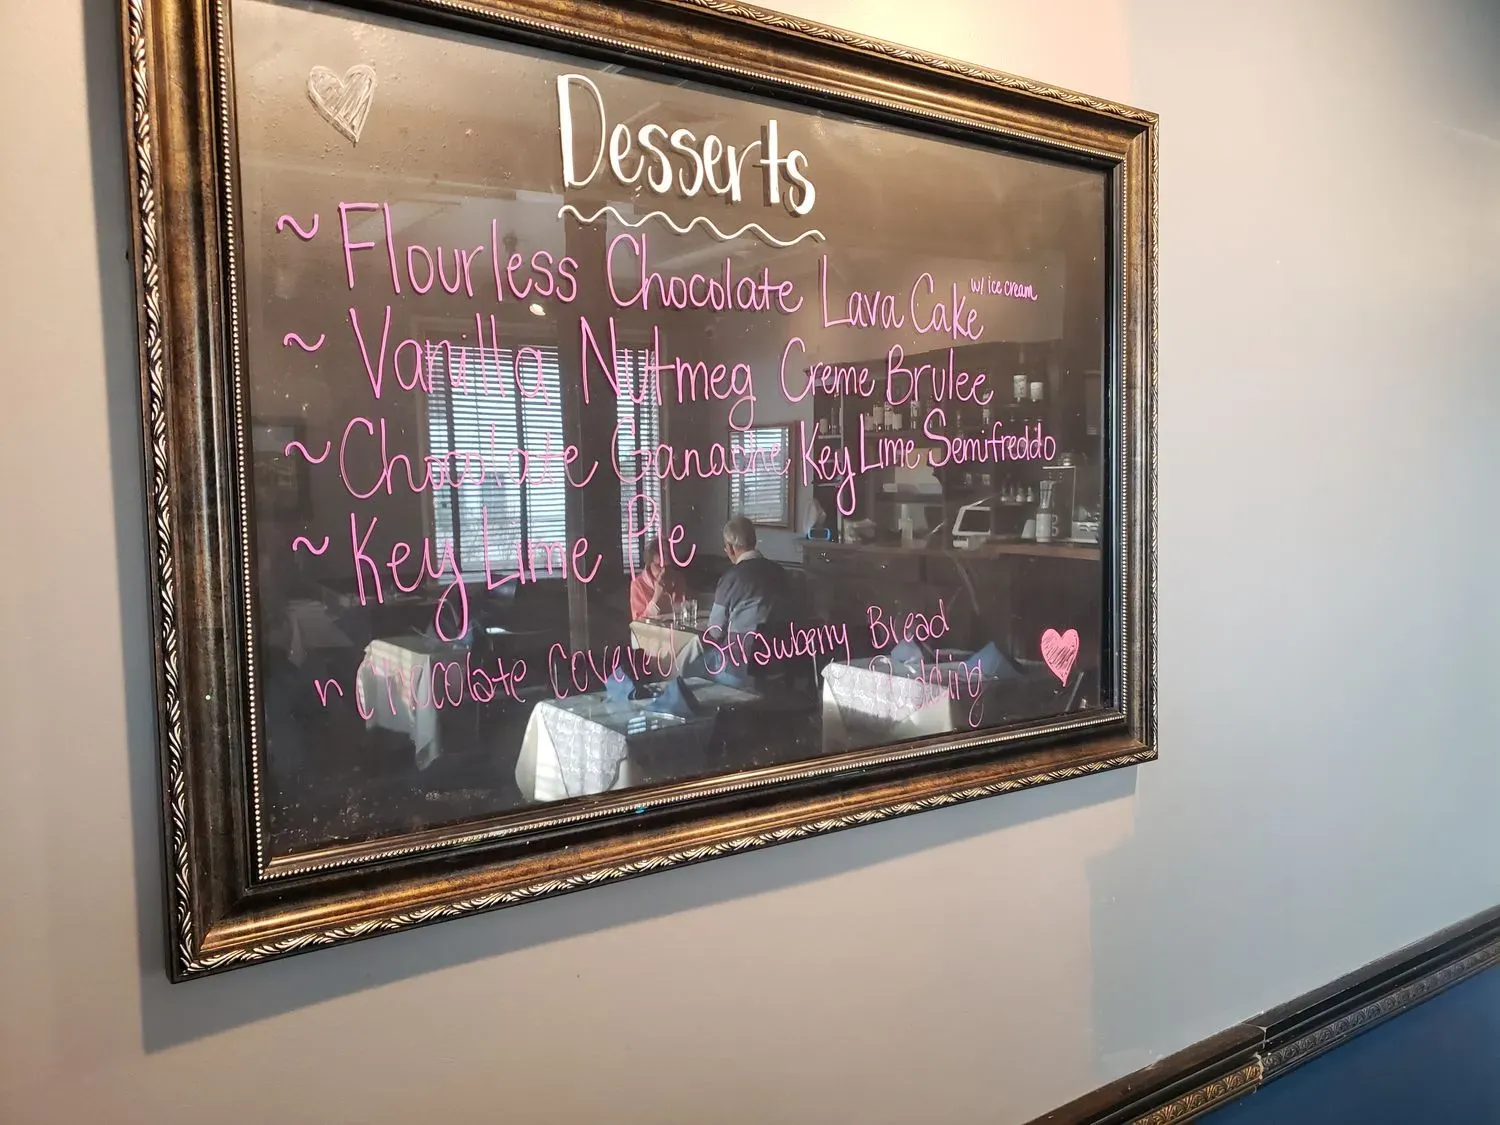 Desserts
~ Flourless Chocolate Lava Cake w/ ice cream
~ Vanilla Nutmeg Creme Brulee
~ Chocolate Ganache Key Lime Semifreddo
~ Key Lime Pie
~ Chocolate Covered Strawberry Bread
Pudding